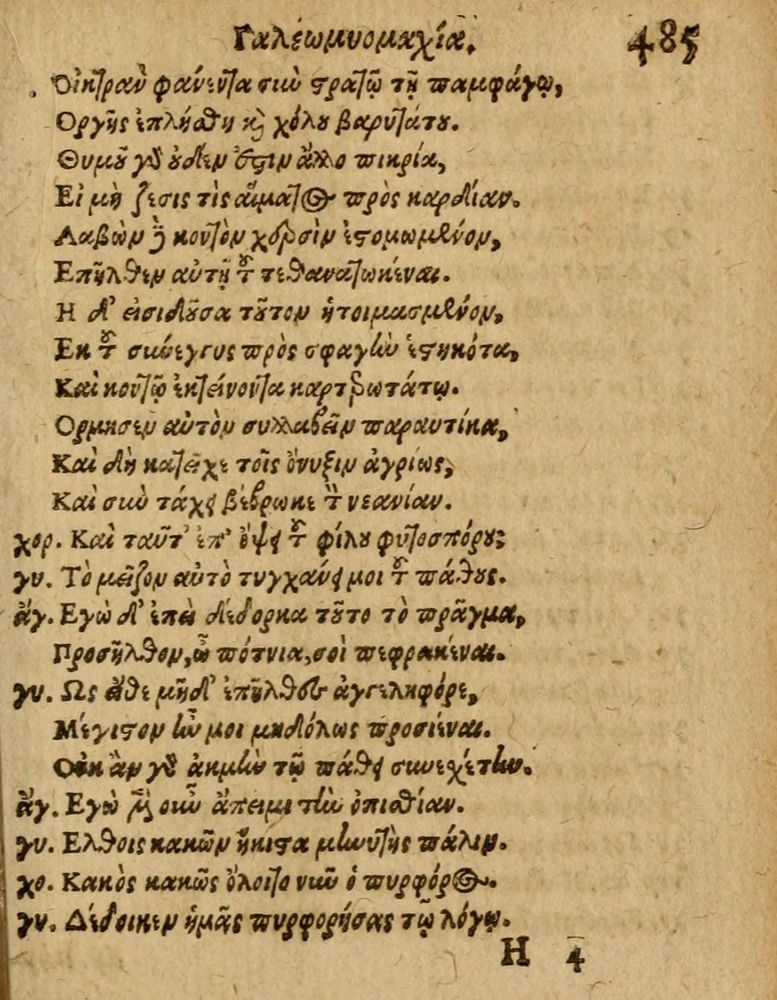 Γαλεωμυομαχία. 485
Οἰκτρὰν φανέντα σὺν στρατῷ τῇ παμφάγῳ,
Οργῆς ἐπλήσθη καὶ χόλου βαρυτάτου.
Θυμοῦ γὰρ οὐδέν ἐστιν ἄλλο πικρία,
Εἰ μὴ ζέσις τὶς αἵματος πρὸς καρδίαν.
Λαβὼν δὲ κοντὸν χερσὶν ἐστομωμένον,
Επῆλθεν αὐτῇ τοῦ τεθανατωκέναι.
Η δ' εἰσιδοῦσα τοῦτον ἡτοιμασμένον,
Εκ τοῦ συνέγγυς πρὸς σφαγὴν ἑστηκότα,
Καὶ κοντῷ ἐκτείνοντα καρτερωτάτῳ.
Ορμησεν αὐτὸν συλλαβεῖν παραυτίκα,
Καὶ δὴ κατεῖχε τοῖς ὄνυξιν ἀγρίως,
Καὶ σὺν τάχει βέβρωκε τὸν νεανίαν.
χορ. Καὶ ταῦτ' ἐπ' ὄψει τοῦ φίλου φυτοσπόρου;
γυ. Τὸ μεῖζον αὐτὸ τυγχάνει μοι τοῦ πάθους.
ἄγ. Εγὼ δ' ἐπεὶ δέδορκα τοῦτο τὸ πρᾶγμα,
Προσῆλθον, ὦ πότνια, σοὶ πεφρακέναι.
γυ. Ως εἴθε μῆδ' ἐπῆλθες ἀγγεληφόρε,
Μέγιστον ἦν μοι μηδόλως προσιέναι.
Οὐκ ἂν γὰρ ἀκμὴν τῷ πάθει συνειχέτην.
ἄγ. Εγὼ μὲν οὖν ἄπειμι τὴν ὀπισθίαν.
γυ. Ελθοις κακῶν ἥκιστα μηνυτὴς πάλιν.
χο. Κακὸς κακῶς ὄλοιτο νῦν ὁ πυρφόρος.
γυ. Δέδοικεν ἡμᾶς πυρφορήσας τῷ λόγῳ.
H 4